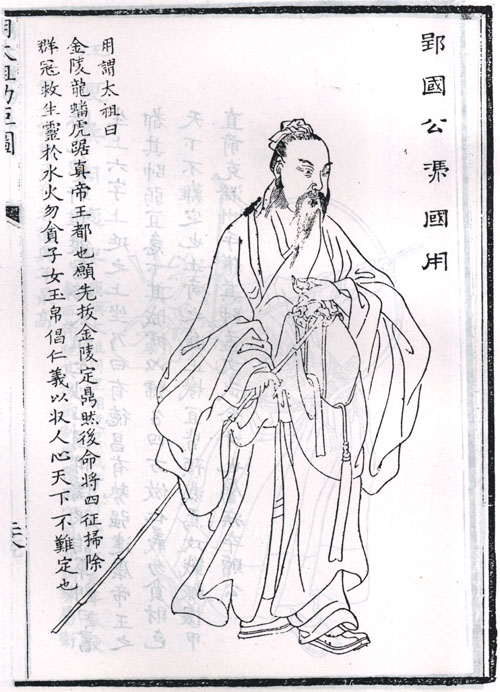 郢國公馮國用
用謂太祖曰
金陵龍蟠虎踞真帝王都也願先拔金陵定鼎然後命將四征掃除
群寇救生靈於水火勿貪子女玉帛倡仁義以収人心天下不難定也
明太祖功臣圖